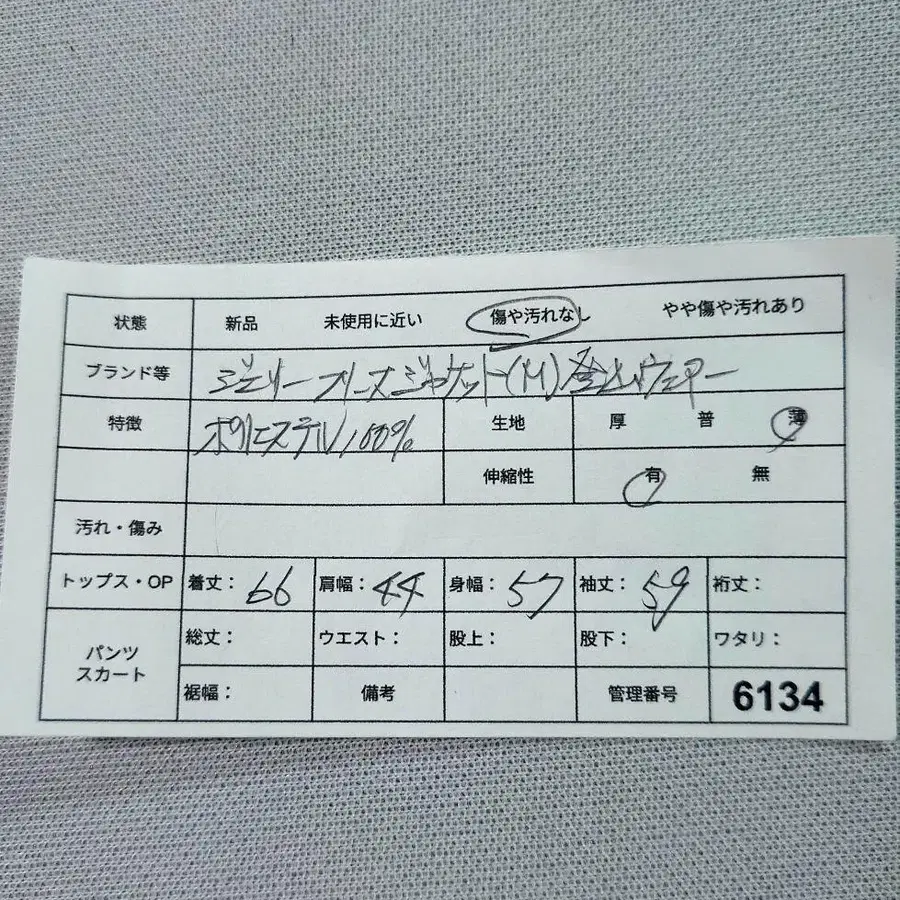 状態 新品 未使用に近い 傷や汚れなし やや傷や汚れあり
ブランド等 ジェリー フリースジャケット(M)登山ウェアー
特徴 ポリエステル100% 生地 厚 普 薄
伸縮性 有 無
汚れ・傷み
トップス・OP 着丈: 66 肩幅: 44 身幅: 57 袖丈: 59 裄丈:
パンツ スカート 総丈: ウエスト: 股上: 股下: ワタリ:
裾幅: 備考 管理番号 6134